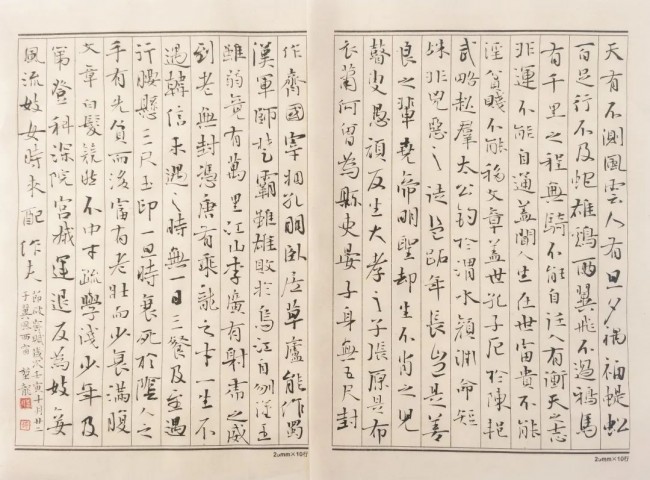 天有不測風雲人有旦夕禍福蜈蚣
百足行不及蛇雄鷄兩翼飛不過鴉馬
有千里之程無騎不能自往人有衝天之志
非運不能自通蓋聞人生在世富貴不能
淫貧賤不能移文章蓋世孔子厄於陳邦
武略超羣太公釣於渭水顏淵命短
殊非兇惡之徒盜跖年長豈是善
良之輩堯帝明聖却生不肖之兒
瞽叟愚頑反生大孝之子張原是布
衣蕭何曾為縣吏晏子身無五尺封
作齊國宰相孔明卧居草廬能作蜀
漢軍師楚霸雖雄敗於烏江自刎漢王
雖弱竟有萬里江山李廣有射虎之威
到老無封馮唐有乘龍之才一生不
遇韓信未遇之時無一日三餐及至遇
行腰懸三尺玉印一旦時衰死於陰人之
手有先貧而後富有老壯而少衰滿腹
文章白髮競然不中才疏學淺少年及
第登科深院宮娥運退反為妓妾
風流妓女時來配作夫
歲次壬寅十月廿二
20mm×10行
20mm×10行